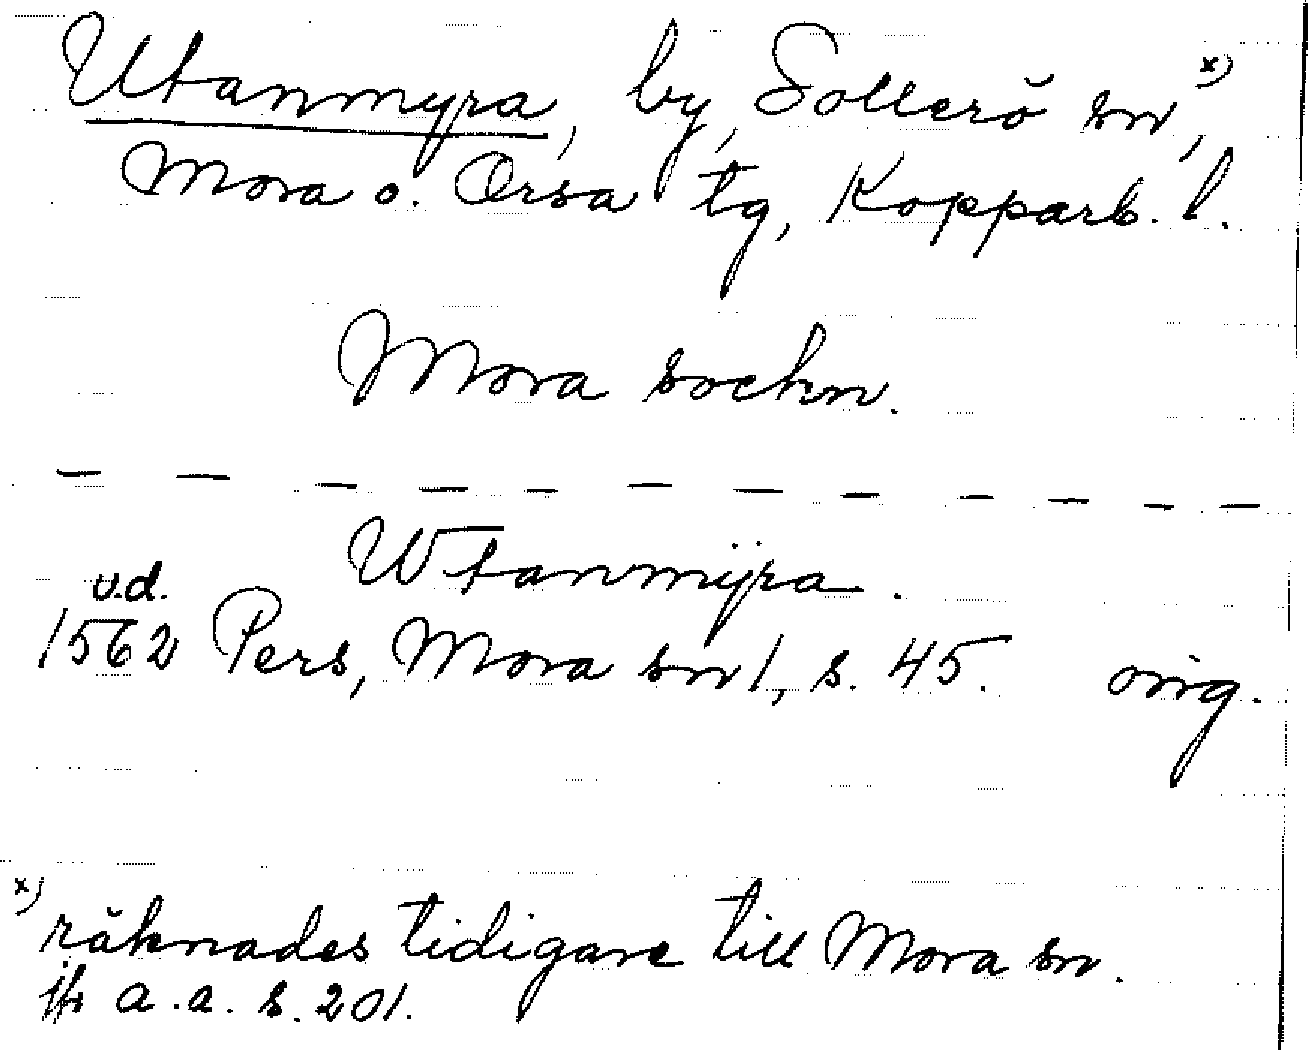 Utanmyra, by, Sollerö sn, x)
Mora o. Orsa tg, Kopparb. l.
Mora sockn.
Wtanmÿra.
u.d.
1562 Pers, Mora sn 1, s. 45. orig.
x) räknades tidigare till Mora sn.
jfr a.a. s. 201.